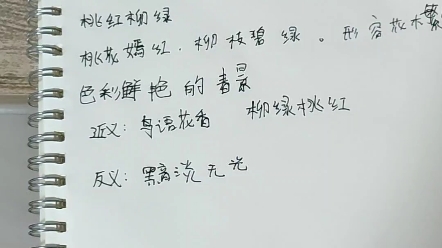 桃红柳绿
桃花嫣红，柳枝碧绿。形容花木繁
色彩鲜艳的春景
近义：鸟语花香 柳绿桃红
反义：黯淡无光